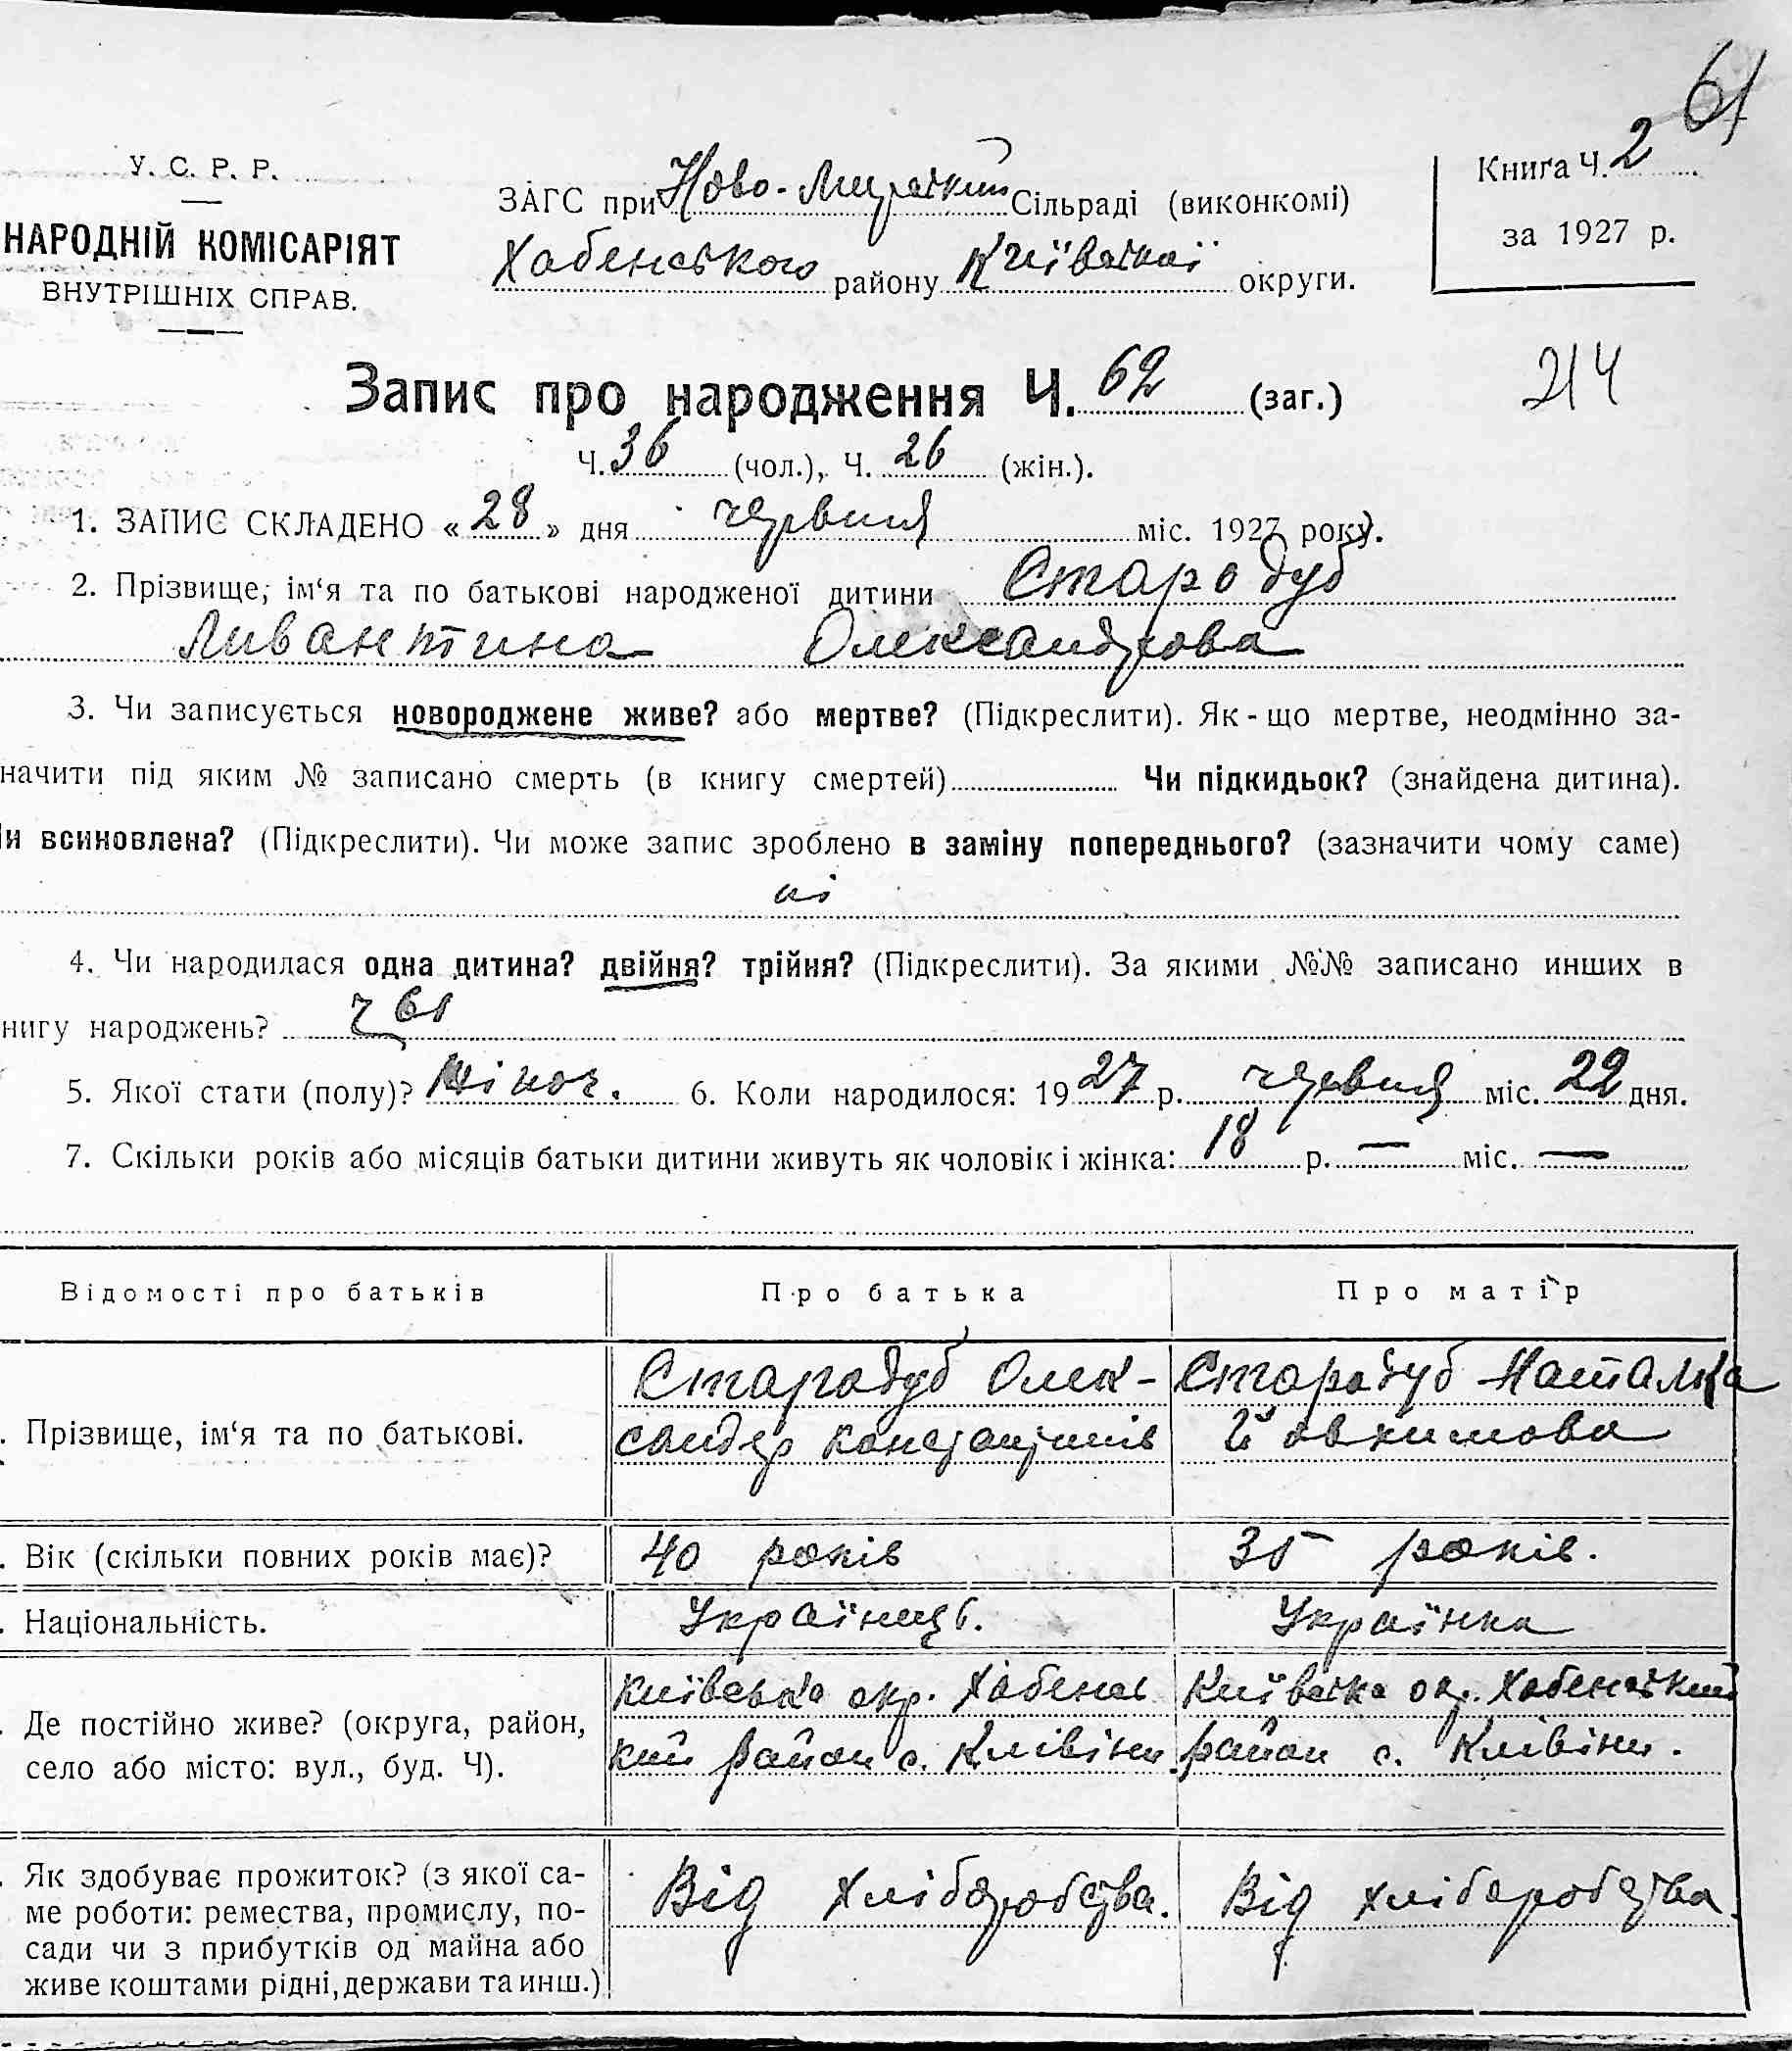 61
У. С. Р. Р.
НАРОДНІЙ КОМІСАРІЯТ
ВНУТРІШНІХ СПРАВ.
ЗАГС при Ново-Мирський Сільраді (виконкомі)
Хабенського району Київської округи.
Книга Ч. 2
за 1927 р.
Запис про народження Ч. 62 (заг.)
214
Ч. 36 (чол.), Ч. 26 (жін.).
1. ЗАПИС СКЛАДЕНО «28» дня червня міс. 1927 року.
2. Прізвище, ім‘я та по батькові народженої дитини Стародуб
Ливантина Олександрова
3. Чи записується новороджене живе? або мертве? (Підкреслити). Як-що мертве, неодмінно за-
начити під яким № записано смерть (в книгу смертей) Чи підкидьок? (знайдена дитина).
и всиновлена? (Підкреслити). Чи може запис зроблено в заміну попереднього? (зазначити чому саме)
ні
4. Чи народилася одна дитина? двійня? трійня? (Підкреслити). За якими №№ записано инших в
нигу народжень? ч 61
5. Якої стати (полу)? жіноч. 6. Коли народилося: 1927 р. червня міс. 22 дня.
7. Скільки років або місяців батьки дитини живуть як чоловік і жінка: 18 р. — міс. —
Відомості про батьків
Про батька
Про матір
. Прізвище, ім‘я та по батькові.
Стародуб Олек-
сандер Константинів
Стародуб Наталка
Йовкимова
. Вік (скільки повних років має)?
40 років
35 років.
. Національність.
Українець.
Українка
. Де постійно живе? (округа, район,
село або місто: вул., буд. Ч).
Київська окр. Хабенсь
кий район с. Клівіни.
Київська ок. Хабенський
район с. Клівіни.
. Як здобуває прожиток? (з якої са-
ме роботи: ремества, промислу, по-
сади чи з прибутків од майна або
живе коштами рідні, держави та инш.)
Від хліборобства.
Від хліборобства.